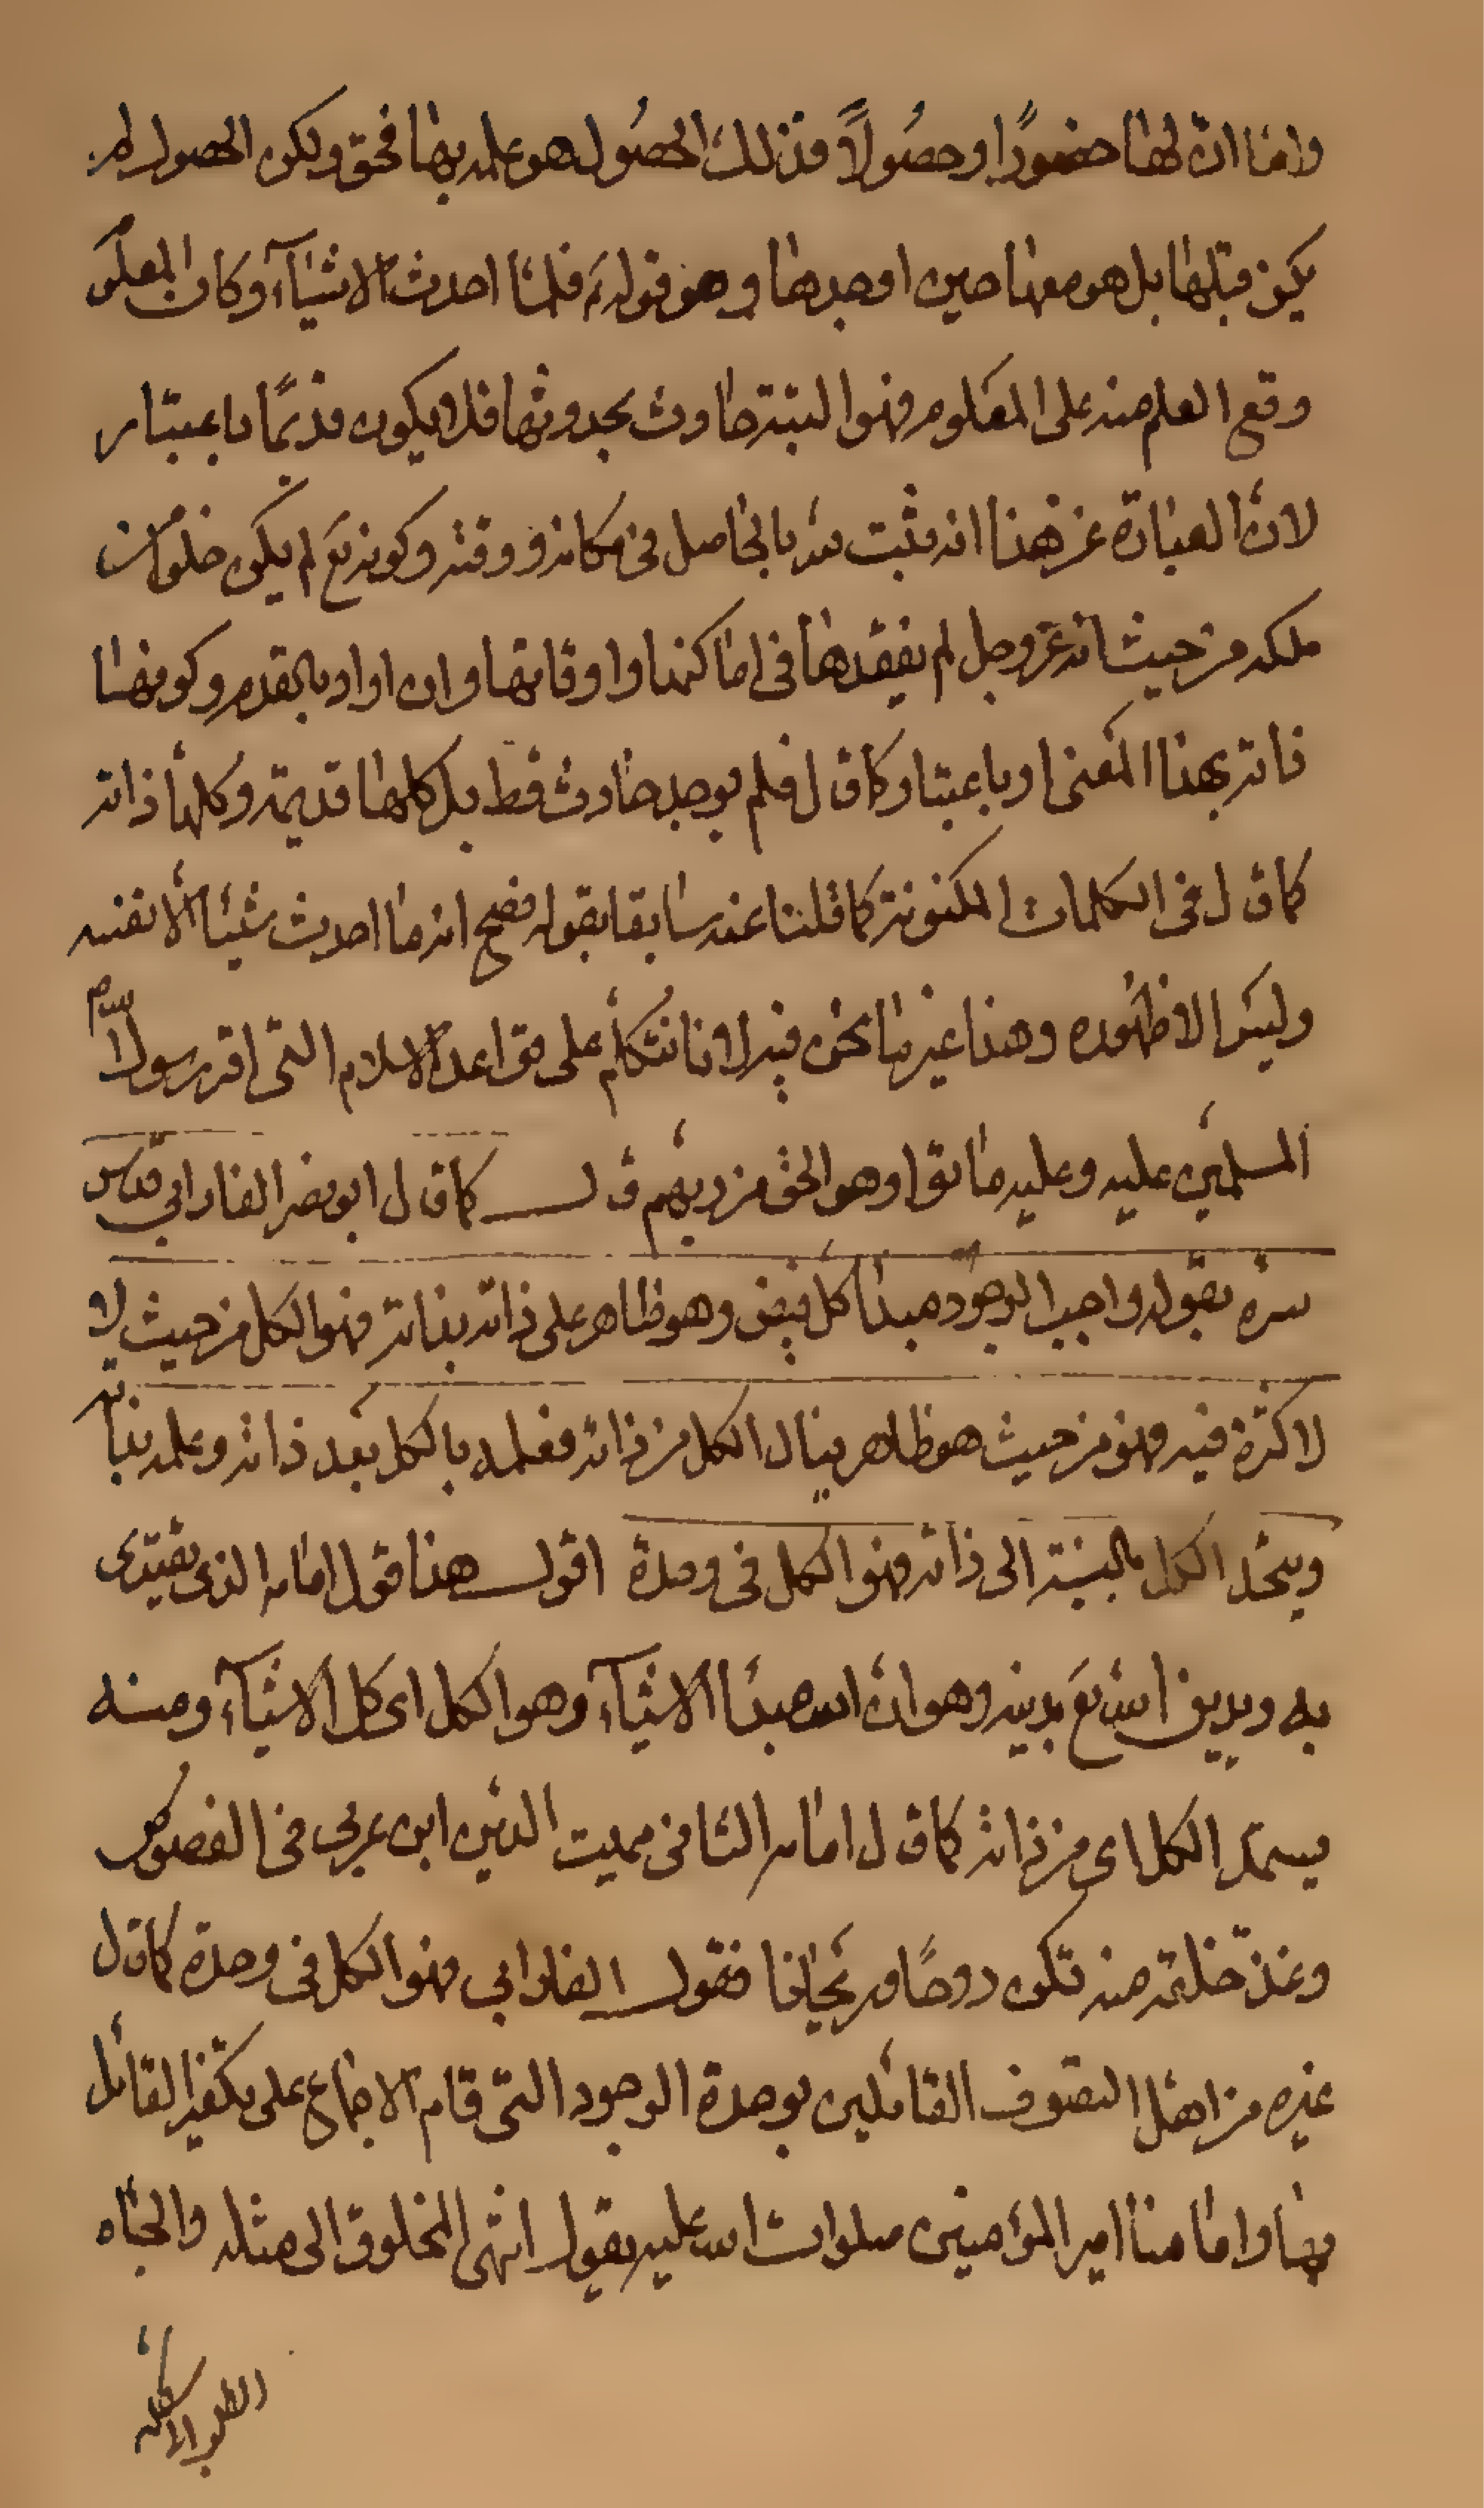 واما ان لها حضورا او حصولاً فذلك الحصُول هو علمه بها فحق ولكن الحصول لم
يكن قبلها بل هو معها حين اوجدها وهو قوله ع فلما احدث الاشيآء وكان المعلوم
وقع العلم منه على المعلوم فهو البتة حادث بحدوثها فلا يكون قديمًا باعتبار
لان العبارة عن هذا انه مثبت لله بالحاصل فى مكانه ووقته وكونه تع لم يكن خلوا من
ملكه من حيث انه عز وجل لم يفقدها فى اماكنها واوقاتها وان اراد بالقدم وكونها
ذاته بهذا المعنى او باعتبار كما قال فلم يوجد حادث قط بل كلها قديمة وكلها ذاته
كما قال فى الكلمات المكنونة كما قلنا عنه سابقا بقوله فصح انه ما احدث شيئا الا نفسه
وليس الا ظهوره وهذا غير ما نحن فيه لانا نتكلم على قواعد الاسلام التى اقر رسول الله ص
المسلمين عليه وعليه ماتوا وهو الحق من ربهم قال كما قال ابو نصر الفارابي قدس
سره بقوله واجب الوجود مبدأ كل فيض وهو ظاهر على ذاته بذاته فهو الكل من حيث لا
لا كثرة فيه فهو من حيث هو ظاهر ينال الكل من ذاته فعلمه بالكل بعد ذاته وعلمه بذاته
ويتحد الكل بالنسبة الى ذاته فهو الكل فى وحدة اقول هذا قول امامه الذى يقتدى
به ويدين الله تع بدينه وهو ان الله مبدأ الاشيآء وهو الكل اى كل الاشيآء ومنه
يستمد الكل اى من ذاته كما قال امامه الثانى مميت الدين ابن عربى فى الفصوص
وغذ خلقه منه تكن روحًا وريحانا فقول الفارابي فهو الكل فى وحدة كما قال
غيره من اهل التصوف القائلين بوحدة الوجود التى قام الاجماع على تكفير القائل
بها وامامنا امير المؤمنين صلوات الله عليه يقول انتهى المخلوق الى مثله والجاه
الطلب الى شكله